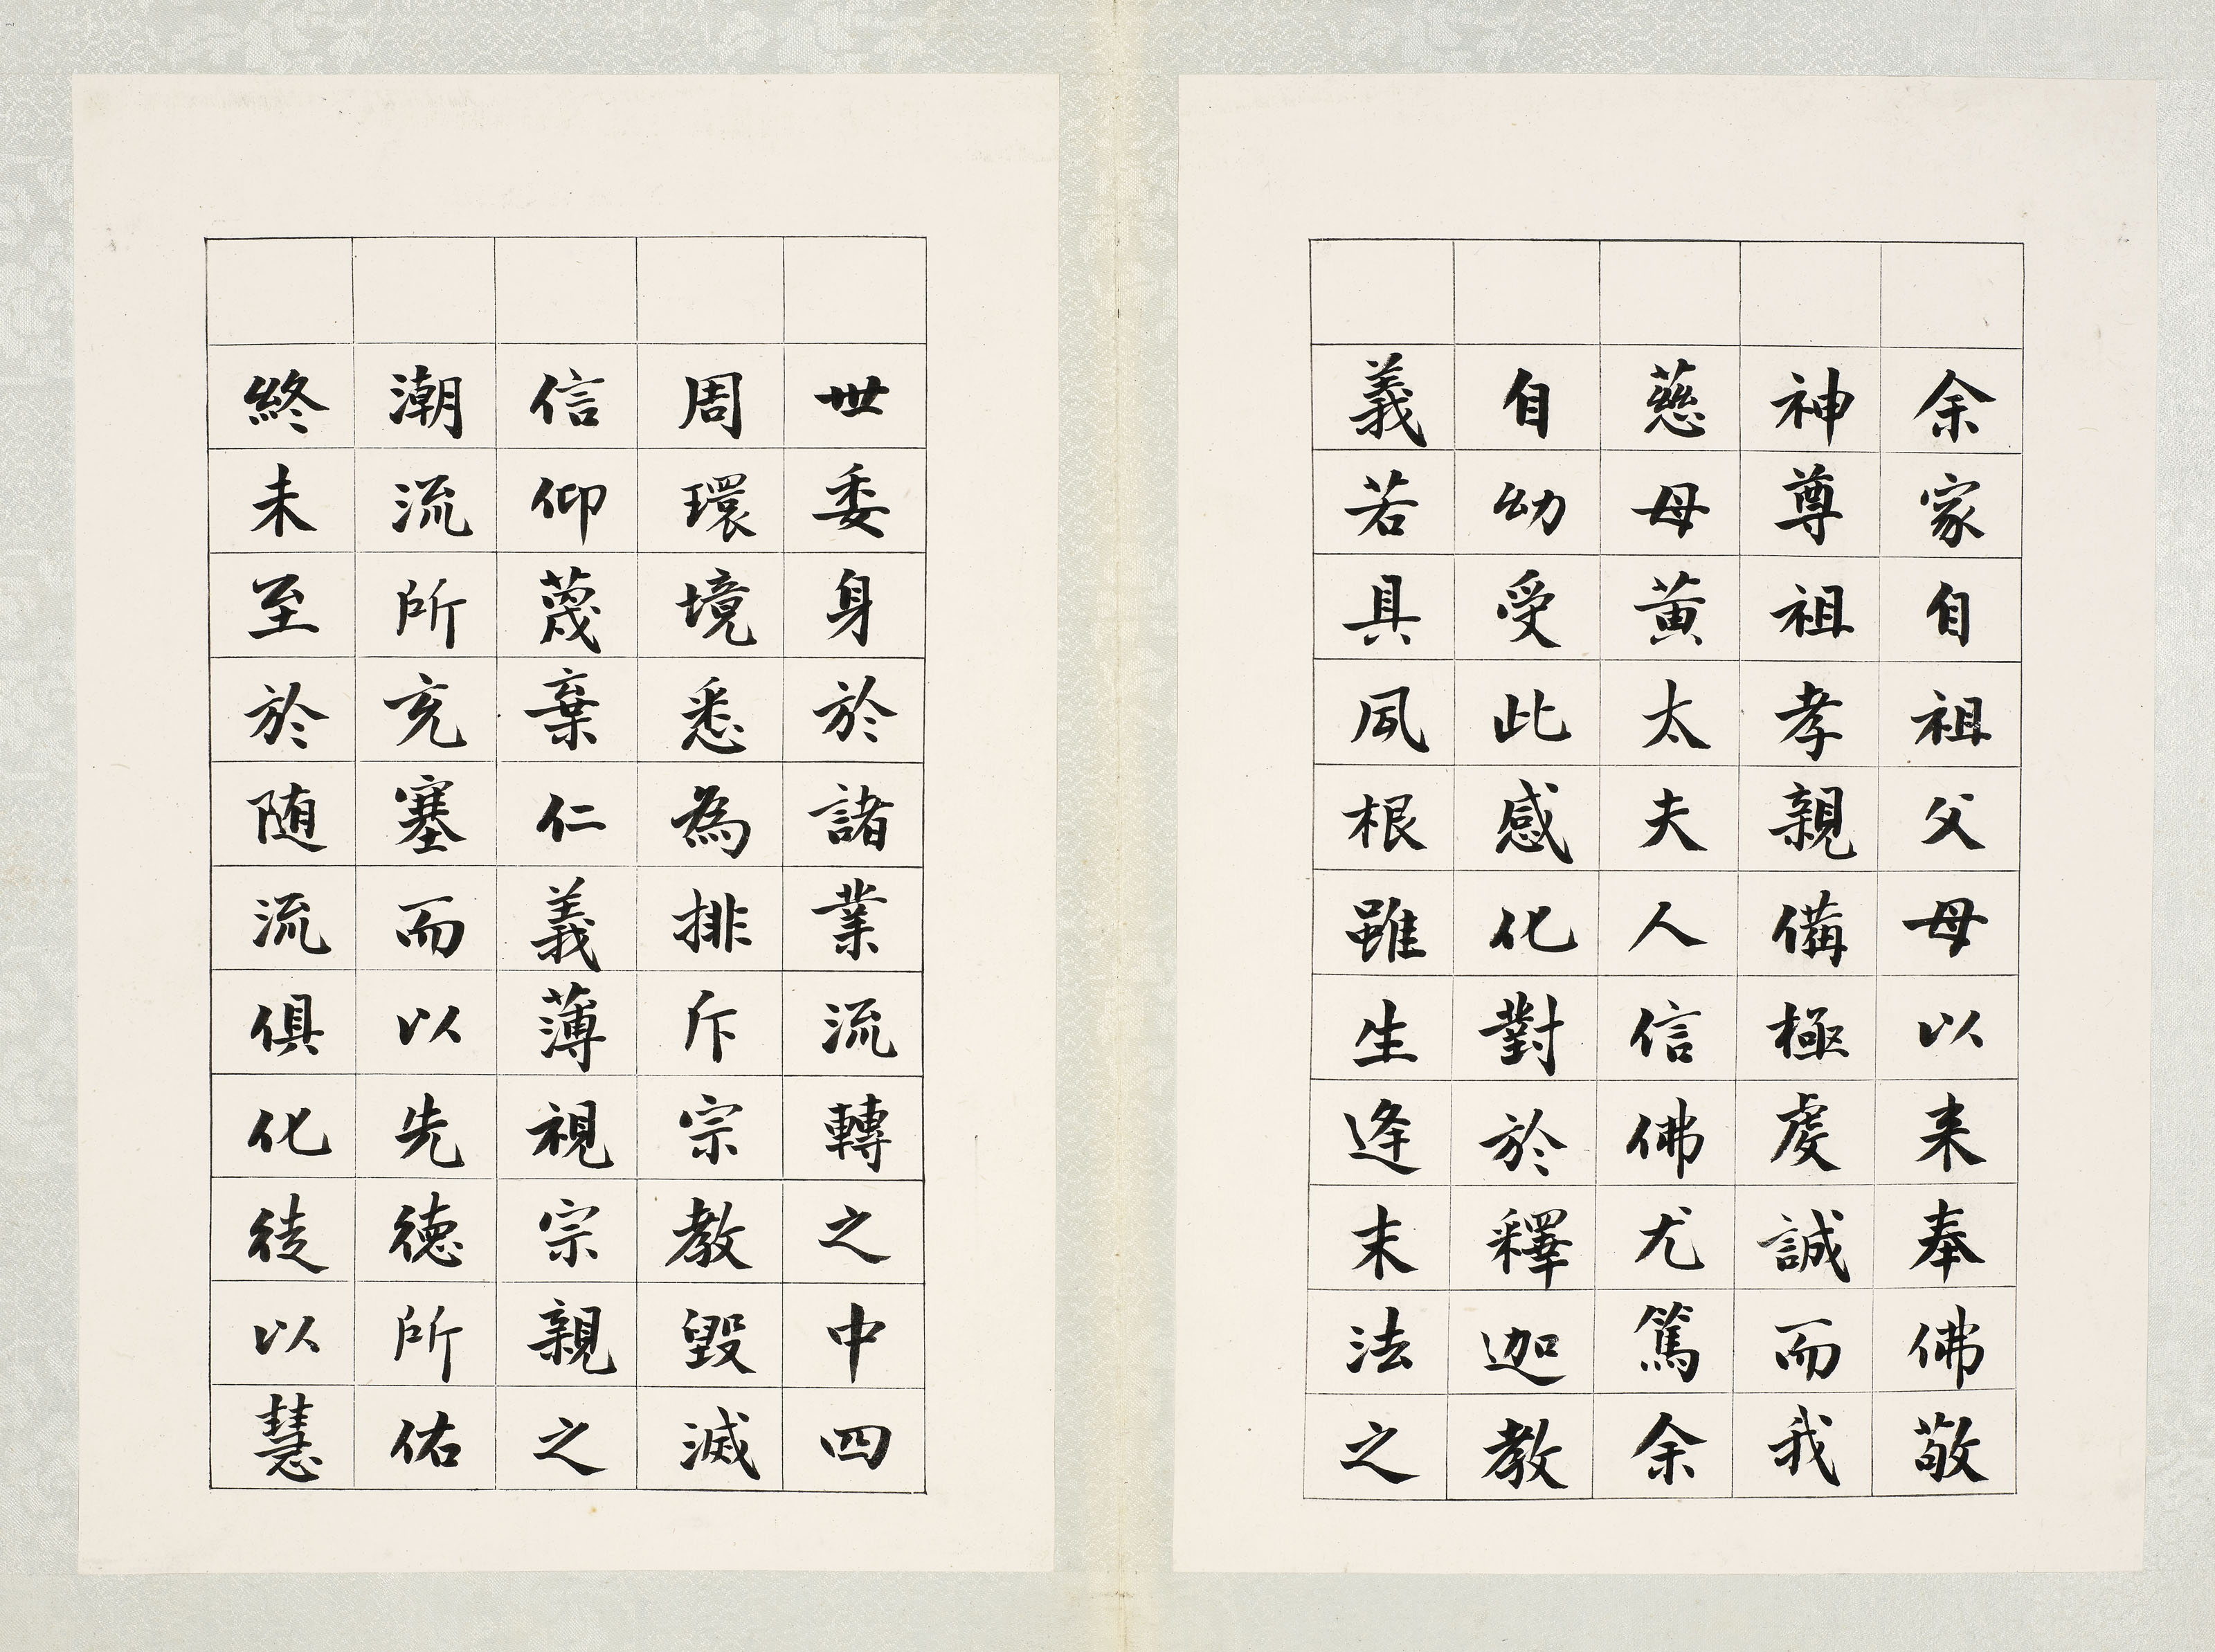 余家自祖父母以来奉佛敬
神尊祖孝親備極虔誠而我
慈母黃太夫人信佛尤篤余
自幼受此感化對於釋迦教
義若具夙根雖生逢末法之
世委身於諸業流轉之中四
周環境悉為排斥宗教毀滅
信仰蔑棄仁義薄視宗親之
潮流所充塞而以先德所佑
終未至於随流俱化徒以慧